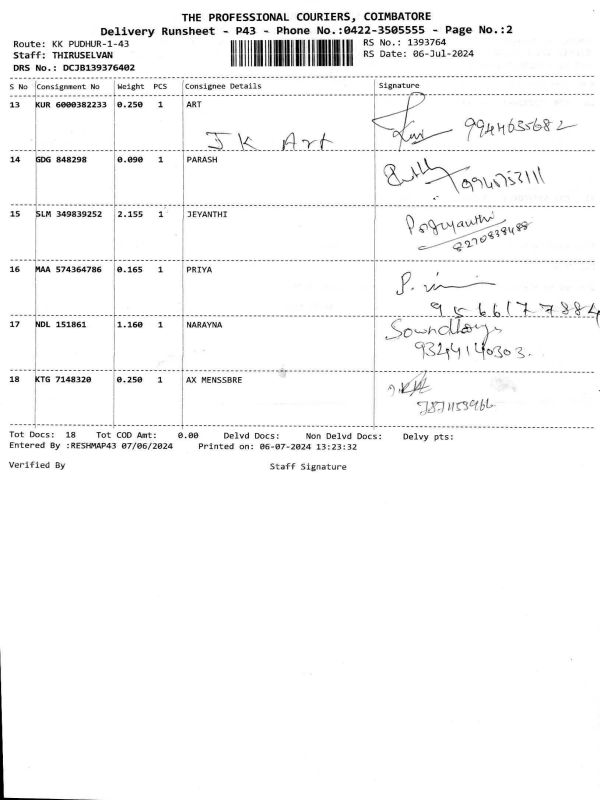 THE PROFESSIONAL COURIERS, COIMBATORE
Delivery Runsheet - P43 - Phone No.:0422-3505555 - Page No.:2
Route: KK PUDHUR-1-43 RS No.: 1393764
Staff: THIRUSELVAN RS Date: 06-Jul-2024
DRS No.: DCJB139376402
S No Consignment No Weight PCS Consignee Details Signature
13 KUR 6000382233 0.250 1 ART
JK Art 9944635682
14 GDG 848298 0.090 1 PARASH
15 SLM 349839252 2.155 1 JEYANTHI
8270838488
16 MAA 574364786 0.165 1 PRIYA
9566177884
17 NDL 151861 1.160 1 NARAYNA
9324140303.
18 KTG 7148320 0.250 1 AX MENSSBRE
Tot Docs: 18 Tot COD Amt: 0.00 Delvd Docs: Non Delvd Docs: Delvy pts:
Entered By :RESHMAP43 07/06/2024 Printed on: 06-07-2024 13:23:32
Verified By Staff Signature